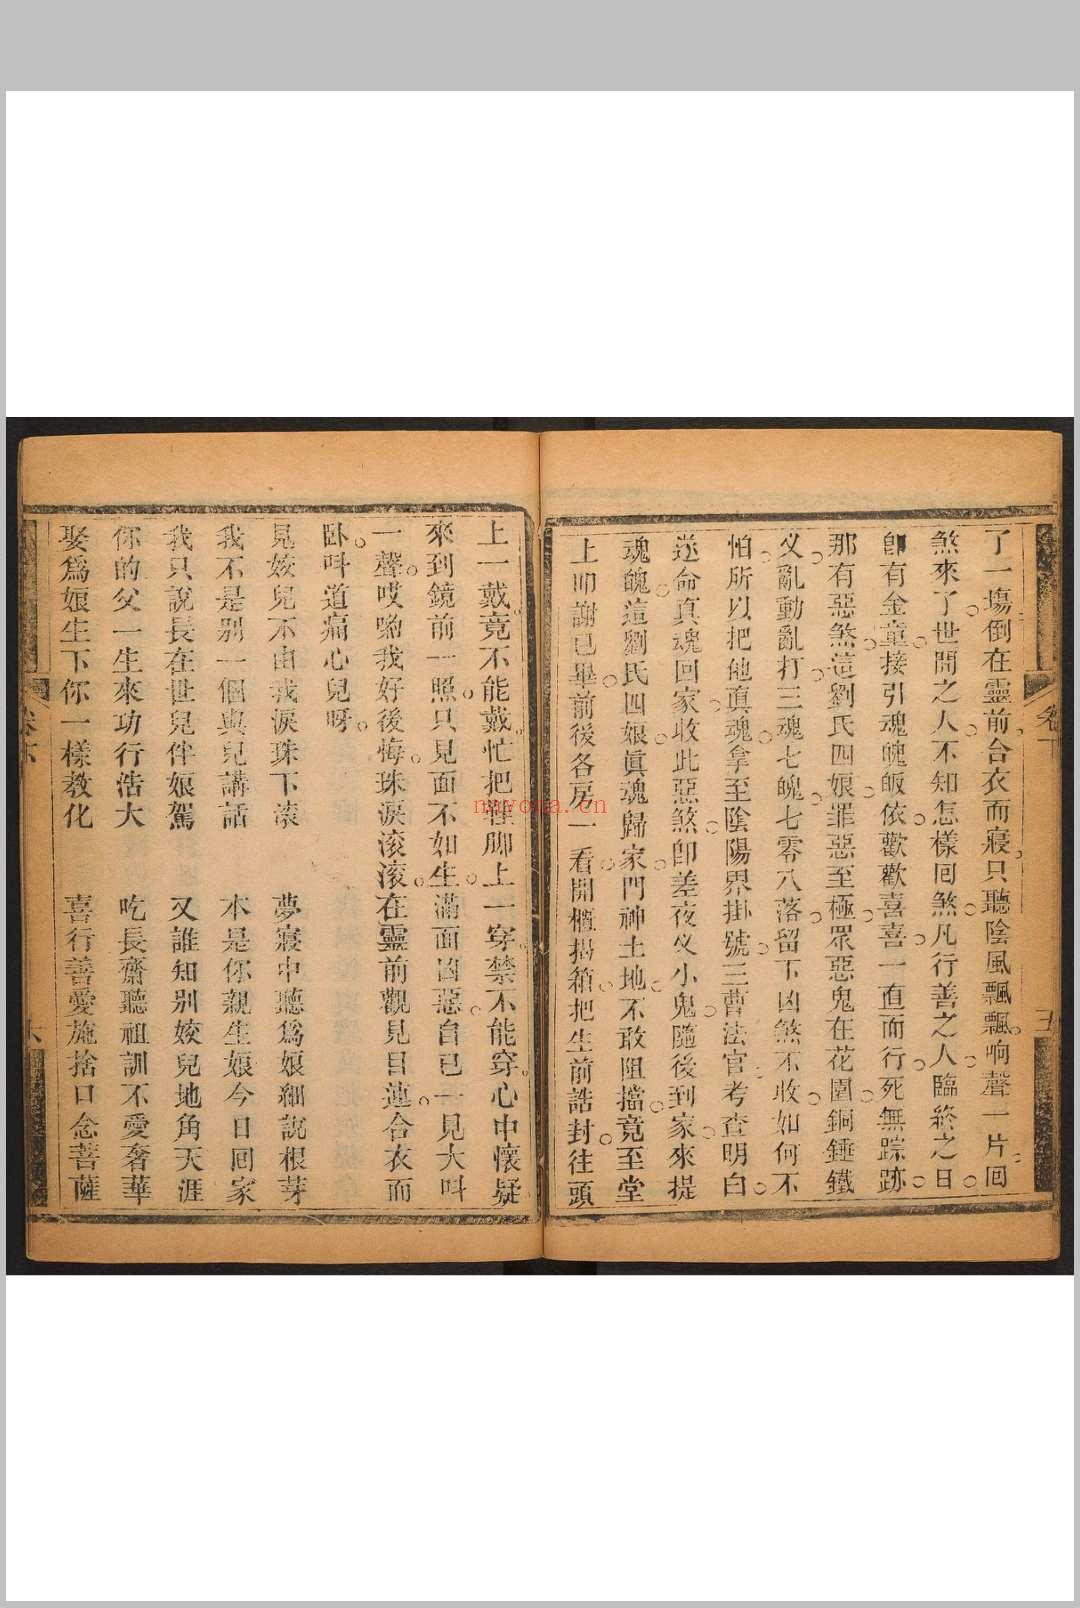 了一塲倒在靈前合衣而寢只聽陰風飄飄响聲一片囘
煞來了世間之人不知怎樣囘煞凡行善之人臨終之日
卽有金童接引魂魄皈依歡歡喜喜一直而行死無踪跡
那有惡煞這劉氏四娘罪惡至極眾惡鬼在花園銅錘鐵
叉亂動亂打三魂七魄七零八落留下凶煞不收如何不
怕所以把他眞魂拿至陰陽界掛號三曹法官考查明白
送命真魂回家收此惡煞卽差夜叉小鬼隨後到家來提
魂魄這劉氏四娘眞魂歸家門神土地不敢阻擋竟至堂
上叩謝已畢前後各房一看開櫃揭箱把生前誥封往頭
上一戴竟不能戴忙把鞋脚上一穿禁不能穿心中懷疑
來到鏡前一照只見面不如生滿面凶惡自已一見大呌
一聲哎喲我好後悔珠淚滚滚在靈前觀見目連合衣而
卧呌道痛心兒呀
見姣兒不由我淚珠下滚 夢寢中聽爲娘細說根芽
我不是别一個與兒講話 本是你親生娘今日囘家
我只說長在世兒伴娘駕 又誰知别姣兒地角天涯
你的父一生來功行浩大 吃長齋聽祖訓不愛奢華
娶爲娘生下你一樣教化 喜行善愛施捨口念菩薩
卷下
五
卷下
六
nuyoga.cn